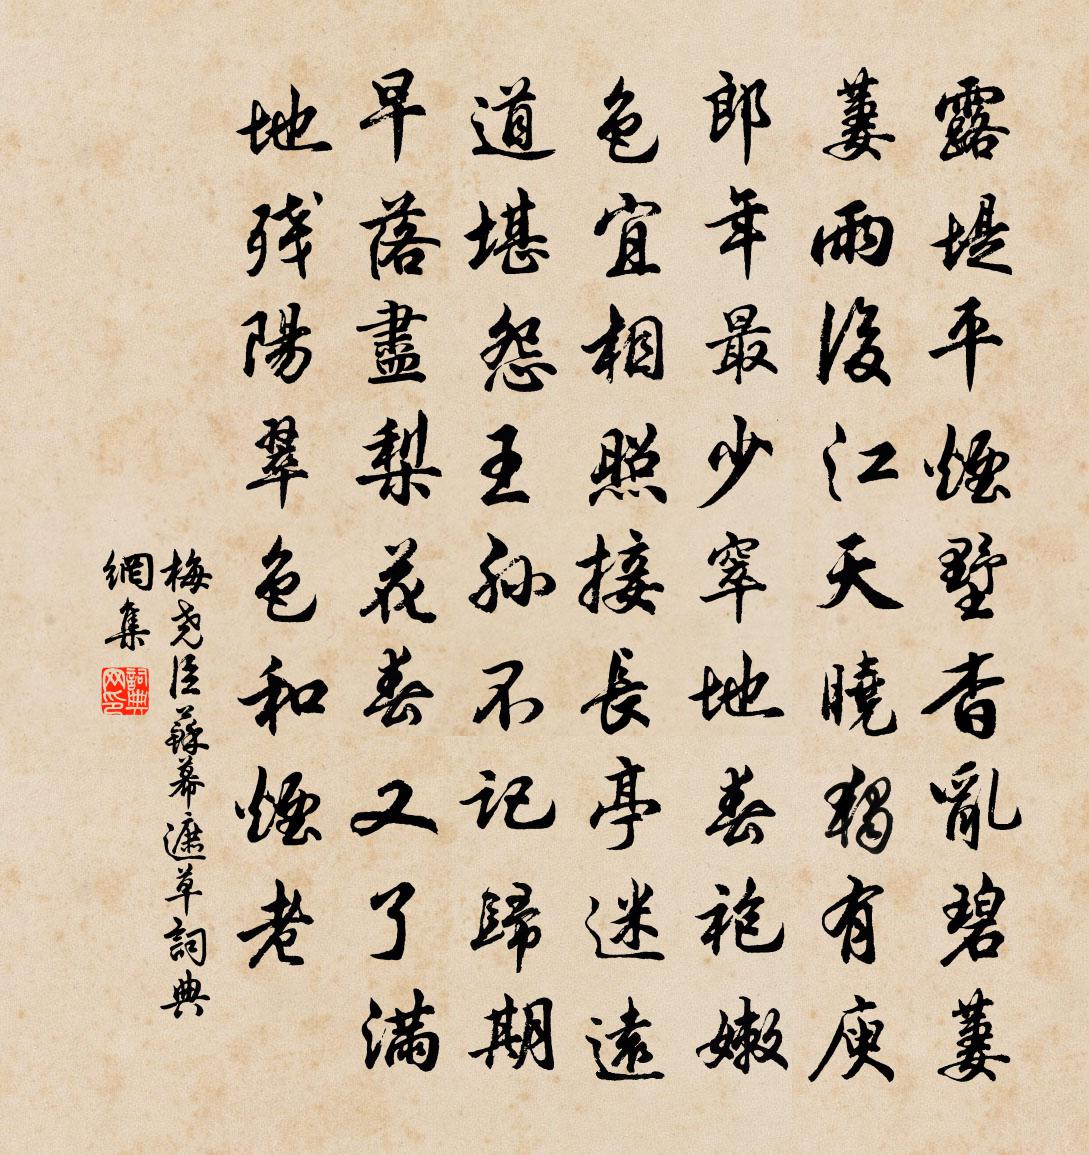 露堤平煙墅杳亂碧萋
萋雨後江天曉獨有庾
郎年最少窣地春袍嫩
色宜相照接長亭迷遠
道堪怨王孫不記歸期
早落盡梨花春又了滿
地殘陽翠色和煙老
梅堯臣蘇幕遮草詞典
網集
詞典
网印